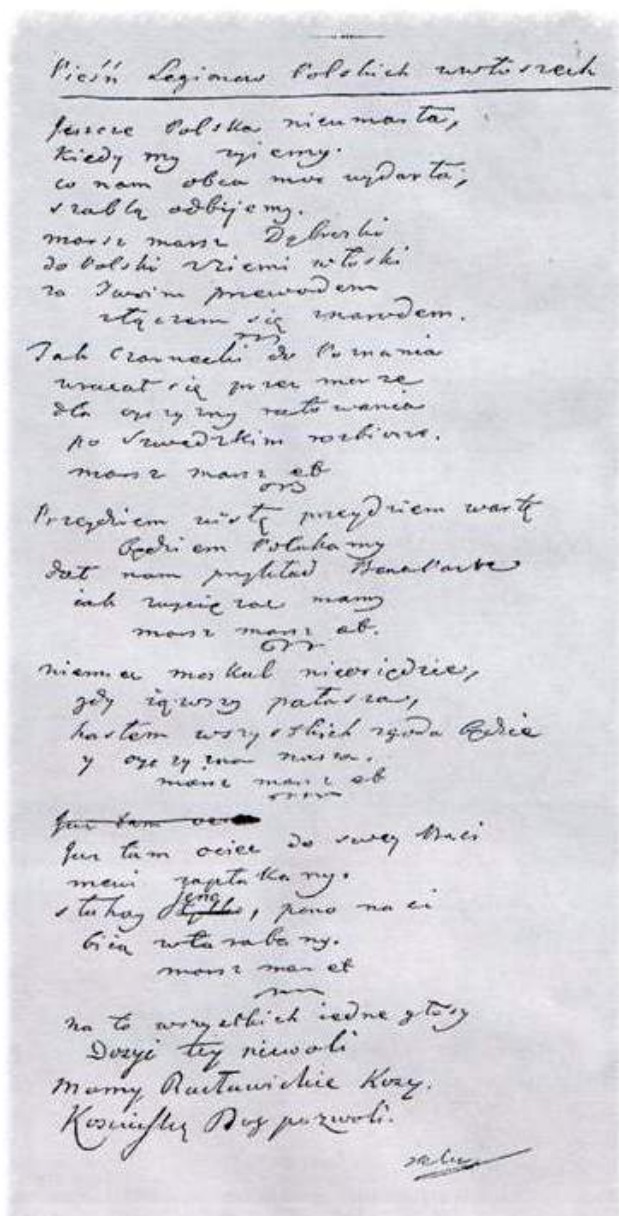 Pieśń Legionow Polskich wewłoszech
Jeszcze Polska nieumarła,
kiedy my żyiemy.
co nam obca moc wydarła,
szablą odbijemy.
marsz marsz Dąbroski
do Polski zziemi włoski
za Twoim przewodem
złączem się znarodem.
Jak Czarnecki do Poznania
wracał się przez morze
dla oyczyzny ratowania
po Szwedzkim rozbiorze.
marsz marsz et
Przeydziem wisłę przeydziem wartę
będziem Polakamy
dał nam przykład Bonaparte
iak zwycięzac mamy
marsz marsz et.
niemiec moskal nieosiędzie,
gdy iąwszy pałasza,
hasłem wszystkich zgoda będzie
y oyczyzna nasza.
marsz marsz et
Już tam ociec
Już tam ociec do swey Basi
mowi zapłakany.
słuchay ieno, pono nasi
biią wtarabany.
marsz mar et
na to wszystkich iedne głosy
Dosyć tey niewoli
mamy Racławickie Kosy.
Kosciuszkę Bog pozwoli.